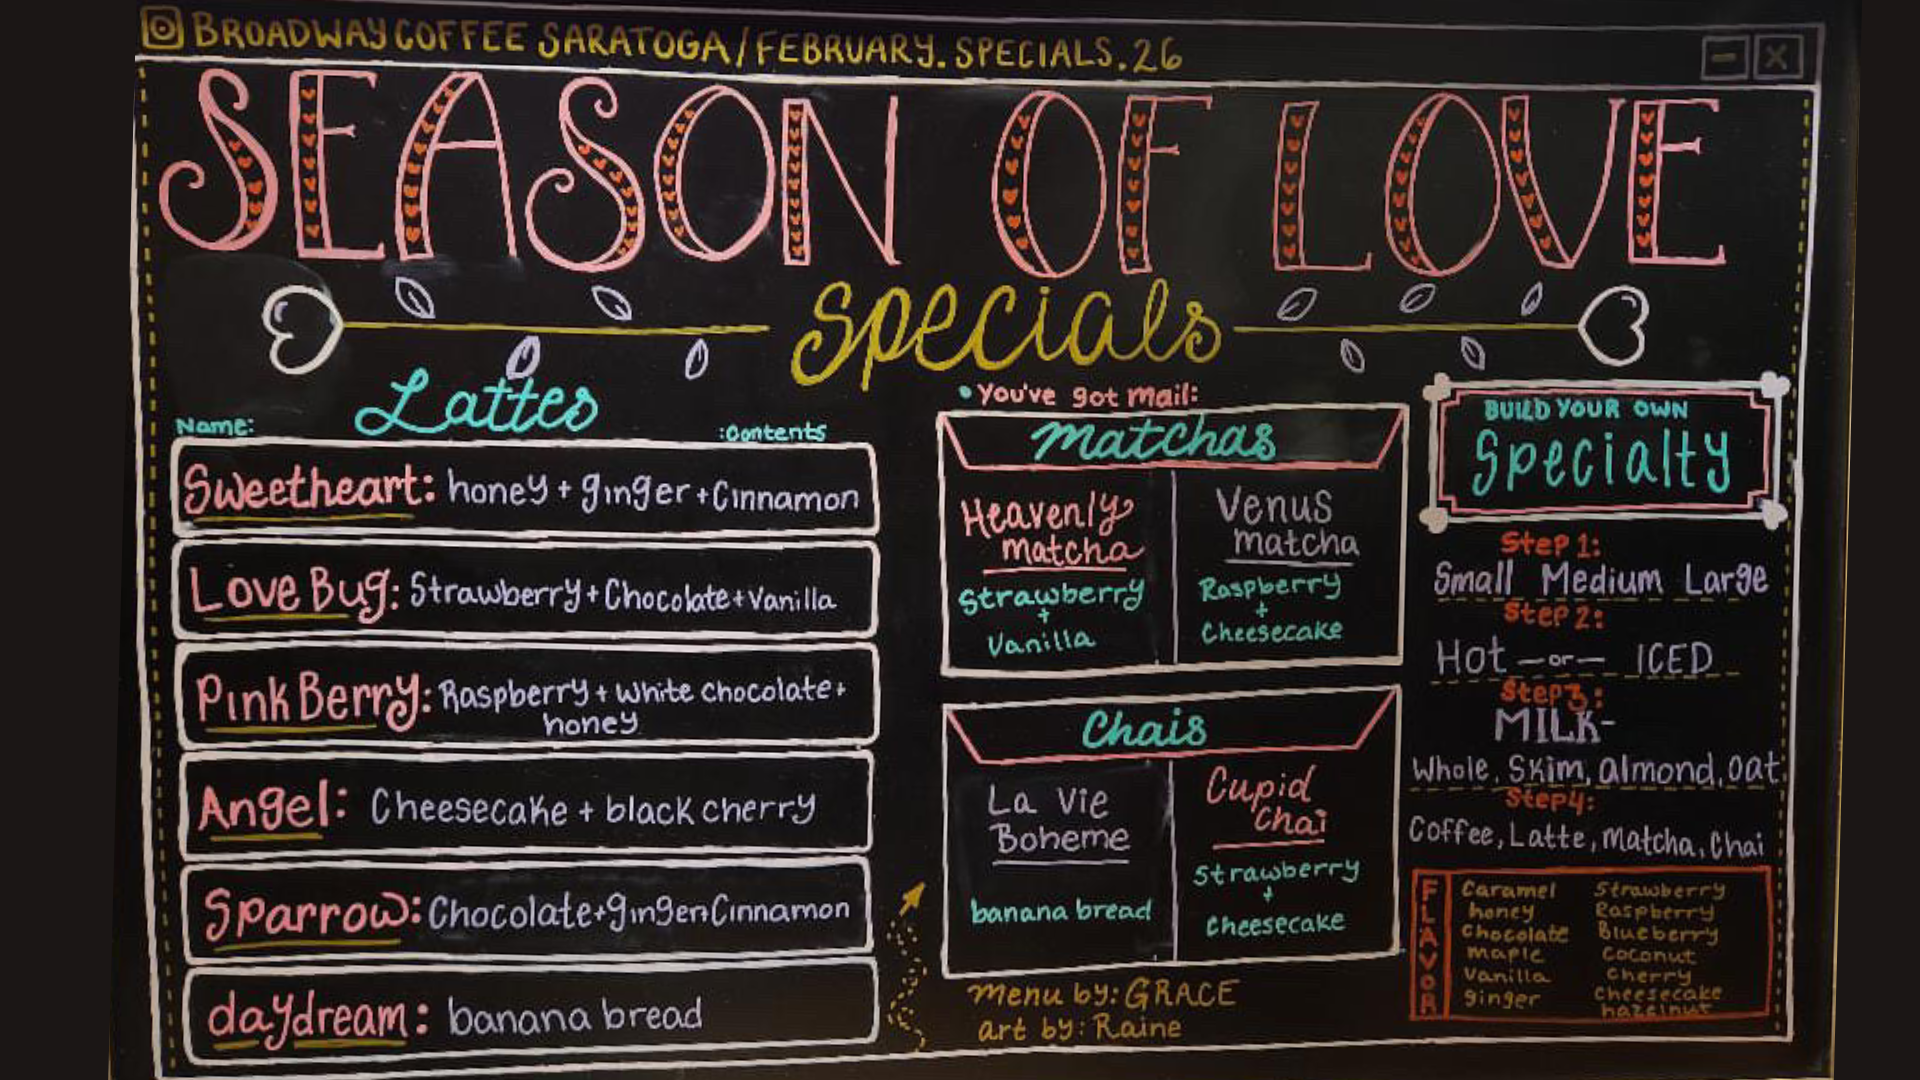 BROADWAY COFFEE SARATOGA/FEBRUARY.SPECIALS.26
SEASON OF LOVE
Specials
Lattes
Name:
:Contents
Sweetheart: honey + ginger + Cinnamon
Love Bug: Strawberry + Chocolate + Vanilla
Pink Berry: Raspberry + White chocolate +
honey
Angel: Cheesecake + black cherry
Sparrow: Chocolate + ginger + Cinnamon
daydream: banana bread
• You've got mail:
matchas
Heavenly
matcha
Strawberry
+
Vanilla
Venus
matcha
Raspberry
+
Cheesecake
Chais
La Vie
Boheme
banana bread
Cupid
Chai
Strawberry
+
Cheesecake
menu by: GRACE
art by: Raine
BUILD YOUR OWN
Specialty
Step 1:
Small Medium Large
Step 2:
Hot —or— ICED
Step 3:
MILK-
Whole, Skim, almond, oat
Step 4:
Coffee, Latte, Matcha, Chai
FLAVOR
Caramel
honey
Chocolate
maple
Vanilla
ginger
Strawberry
Raspberry
Blueberry
Coconut
Cherry
Cheesecake
hazelnut